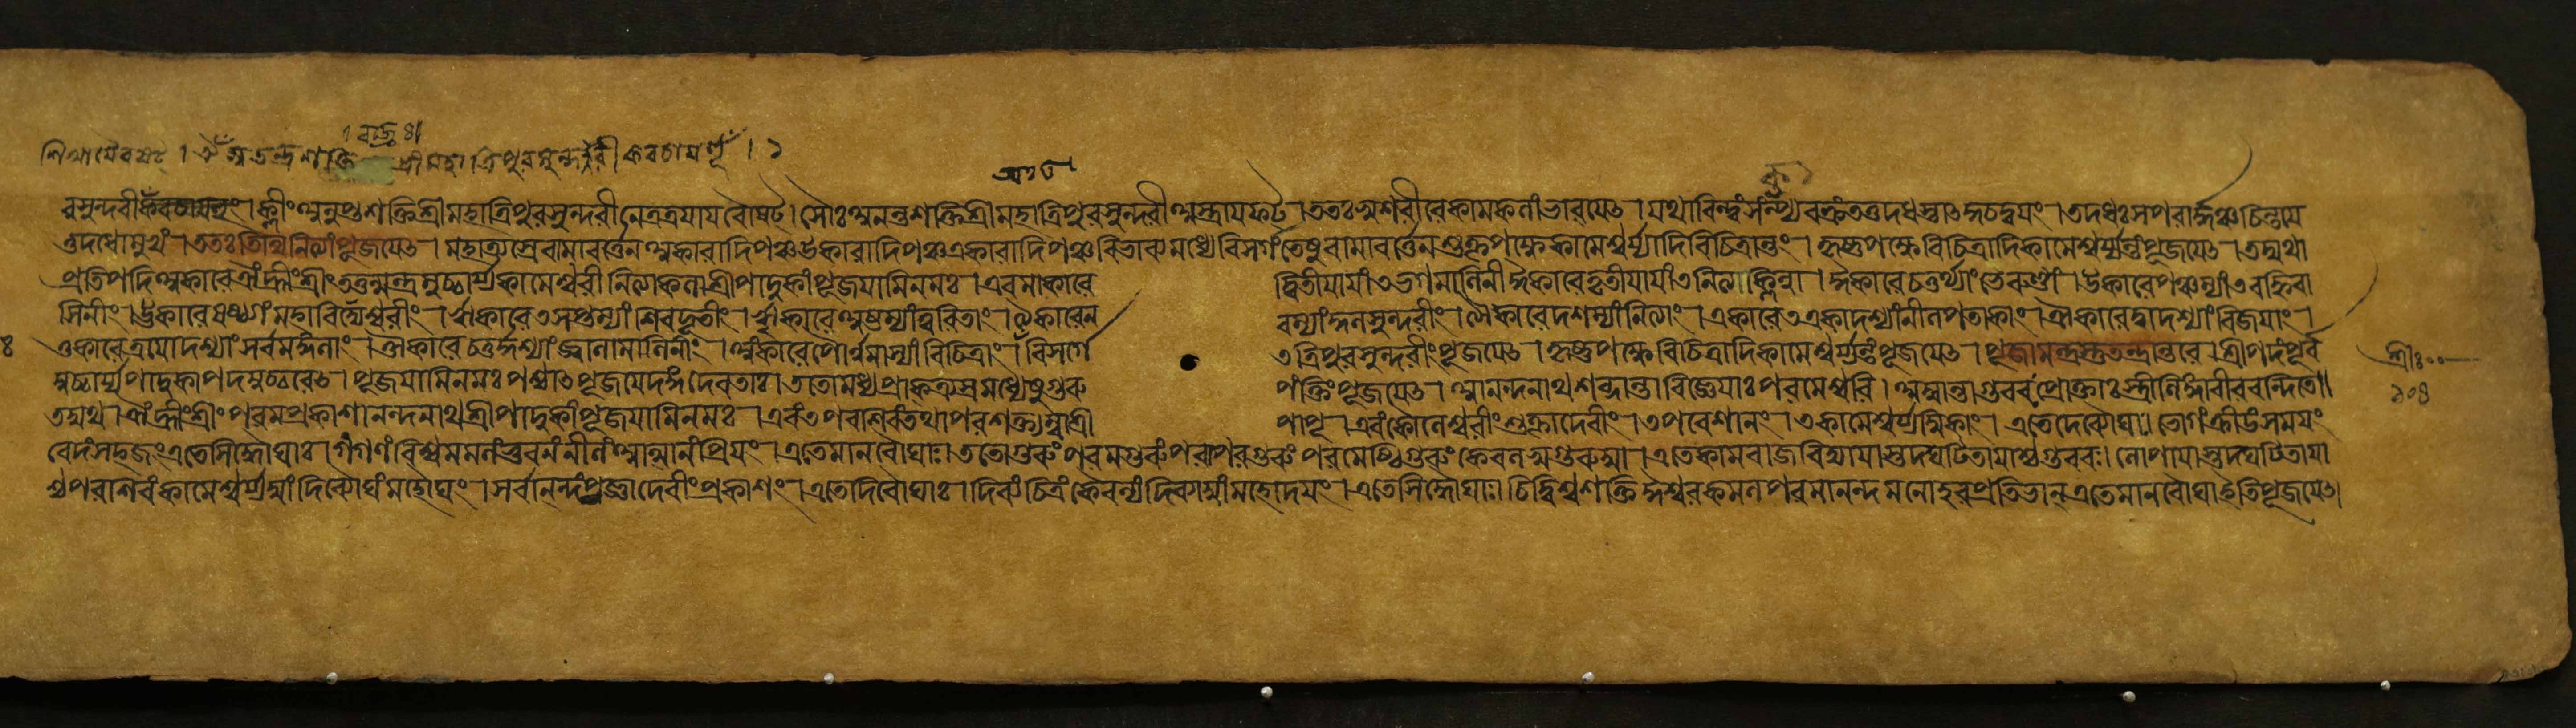 শিখায়ৈবষট্।ঐঁ স্বতন্ত্রশক্তি শ্রীমহাত্রিপুরসুন্দরী কবচায়হূঁ।১
রসুন্দরীকবচায়হুং।ক্লীং অলুপ্তশক্তিশ্রীমহাত্রিপুরসুন্দরীনেত্রত্রয়ায়বৌষট্।সৌঃ অনন্তশক্তিশ্রীমহাত্রিপুরসুন্দরী অস্ত্রায়ফট্।ততঃস্বশরীরেকামকলাংভাবয়েৎ।যথাবিন্দুংসংকল্প্যবক্ত্রংতুতদধস্তাৎকুচদ্বয়ং।তদধঃসপরার্দ্ধঞ্চচিন্তয়ে
ত্তদধোমুখং।ততঃতিথিনিত্যাংপূজয়েৎ।মহাত্র্যস্রেবামাবর্ত্তেন অকারাদিপঞ্চউকারাদিপঞ্চএকারাদিপঞ্চবিভাব্যমধ্যেবিসর্গংতেষুবামাবর্ত্তেনশুক্লপক্ষেকামেশ্বর্য্যাদিবিচিত্রান্তং।কৃষ্ণপক্ষেবিচিত্রাদিকামেশ্বর্য্যন্তংপূজয়েৎ।তদ্যথা
প্রতিপদি অকারেঐংহ্রীংশ্রীংতত্তন্মন্ত্রমুচ্চার্য্যকামেশ্বরীনিত্যাকলাশ্রীপাদুকাংপূজয়ামিনমঃ।এবমাকারে দ্বিতীয়ায়াং৩ভগমালিনীইকারেতৃতীয়ায়াং৩নিত্যক্লিন্না।ঈকারেচতুর্থ্যাংভেরুণ্ডাং।উকারেপঞ্চম্যাং৩বহ্নিবা
সিনীং।ঊকারেষষ্ঠ্যাংমহাবিদ্যেশ্বরীং।ঋকারে৩সপ্তম্যাংশিবদূতীং।ৠকারে অষ্টম্যাংত্বরিতাং।ঌকারেন বম্যাংকুলসুন্দরীং।ৡকারেদশম্যাংনিত্যাং।একারে৩একাদশ্যাংনীলপতাকাং।ঐকারেদ্বাদশ্যাংবিজয়াং।
ওকারেত্রয়োদশ্যাংসর্বমঙ্গলাং।ঔকারেচতুর্দ্দশ্যাংজ্বালামালিনীং।অংকারেপৌর্ণমাস্যাংবিচিত্রাং।বিসর্গে ৩ত্রিপুরসুন্দরীংপূজয়েৎ।কৃষ্ণপক্ষেবিচিত্রাদিকামেশ্বর্য্যন্তংপূজয়েৎ।পূজামন্ত্রস্তুতন্ত্রান্তরে।শ্রীপদংপূর্ব
মুচ্চার্য্যপাদুকাপদমুচ্চরেৎ।পূজয়ামিনমঃপশ্চাৎপূজয়েদঙ্গদেবতাঃ।ততোমধ্যপ্রাক্ত্র্যস্রমধ্যেষুগুরু পংক্তিংপূজয়েৎ।আনন্দনাথশব্দান্তাবিজ্ঞেয়াঃপরমেশ্বরি।অম্বান্তাগুরবঃপ্রোক্তাঃস্ত্রীলিঙ্গাবীরবন্দিতে॥
তদ্যথ।ঐংহ্রীংশ্রীংপরমপ্রকাশানন্দনাথশ্রীপাদুকাংপূজয়ামিনমঃ।এবং৩পরশিবংতথাপরশক্ত্যম্বাশ্রী পাপূ।এবংকৌলেশ্বরীংশুক্লাদেবীং।৩ কামেশ্বর্য্যম্বিকাং।এতেদিব্যৌঘাঃ।ভোগংক্রীডংসময়ং
বেদংসহজংএতেসিদ্ধৌঘাঃ।গগণংবিশ্বমমলংভুবনংলীলাংআত্মানংপ্রিয়ং।এতেমানবৌঘাঃ।ততোগুরুংপরমগুরুংপরাপরগুরুংপরমেষ্ঠিগুরুং।এতেকামরাজবিদ্যায়া গুরবঃ।লোপামুদ্রাঘটিতায়া
শ্চপরাশিবংকামেশ্বর্য্যম্বাংদিব্যৌঘংমহৌঘং।সর্বানন্দংপ্রজ্ঞাদেবীংপ্রকাশং।এতেদিব্যৌঘাঃ।দিব্যংচিত্রংকৈবল্যংদিব্যাম্বাংমহোদয়ং।এতেসিদ্ধৌঘাঃ।চিদ্বিশ্বশক্তিঈশ্বরকমলপরমানন্দমনোহরপ্রতিভান্এতেমানবৌঘাইতিপূজয়েৎ।
শ্রীঃ
১০৪